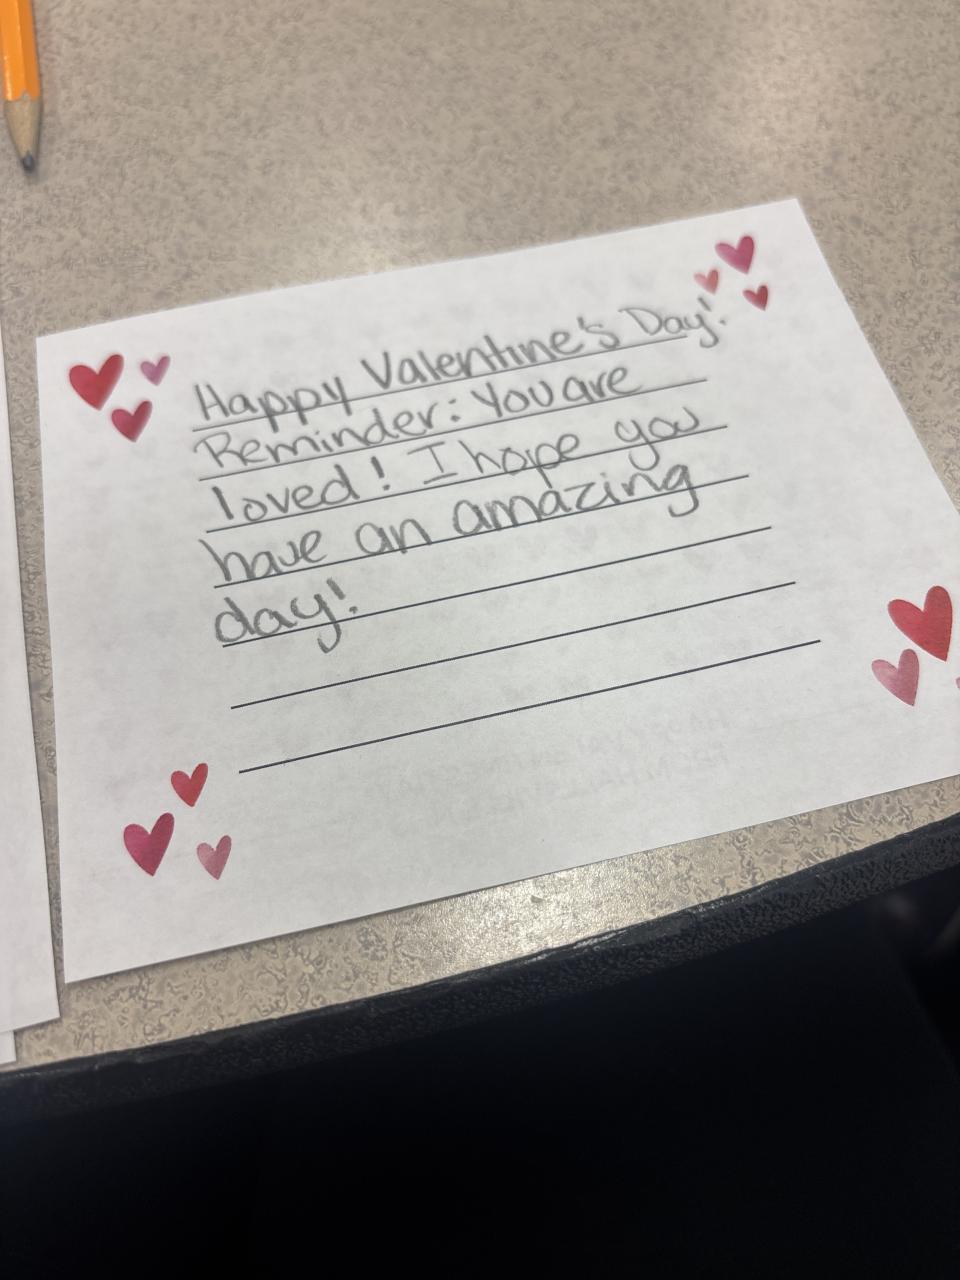 Happy Valentine's Day!
Reminder: You are
loved! I hope you
have an amazing
day!